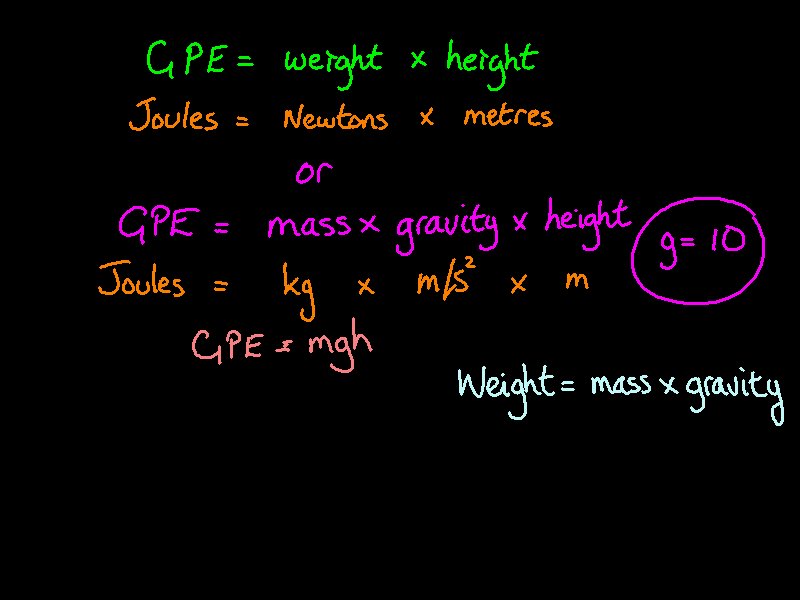 GPE = weight x height
Joules = Newtons x metres
or
GPE = mass x gravity x height
g = 10
Joules = kg x m/s² x m
GPE = mgh
Weight = mass x gravity